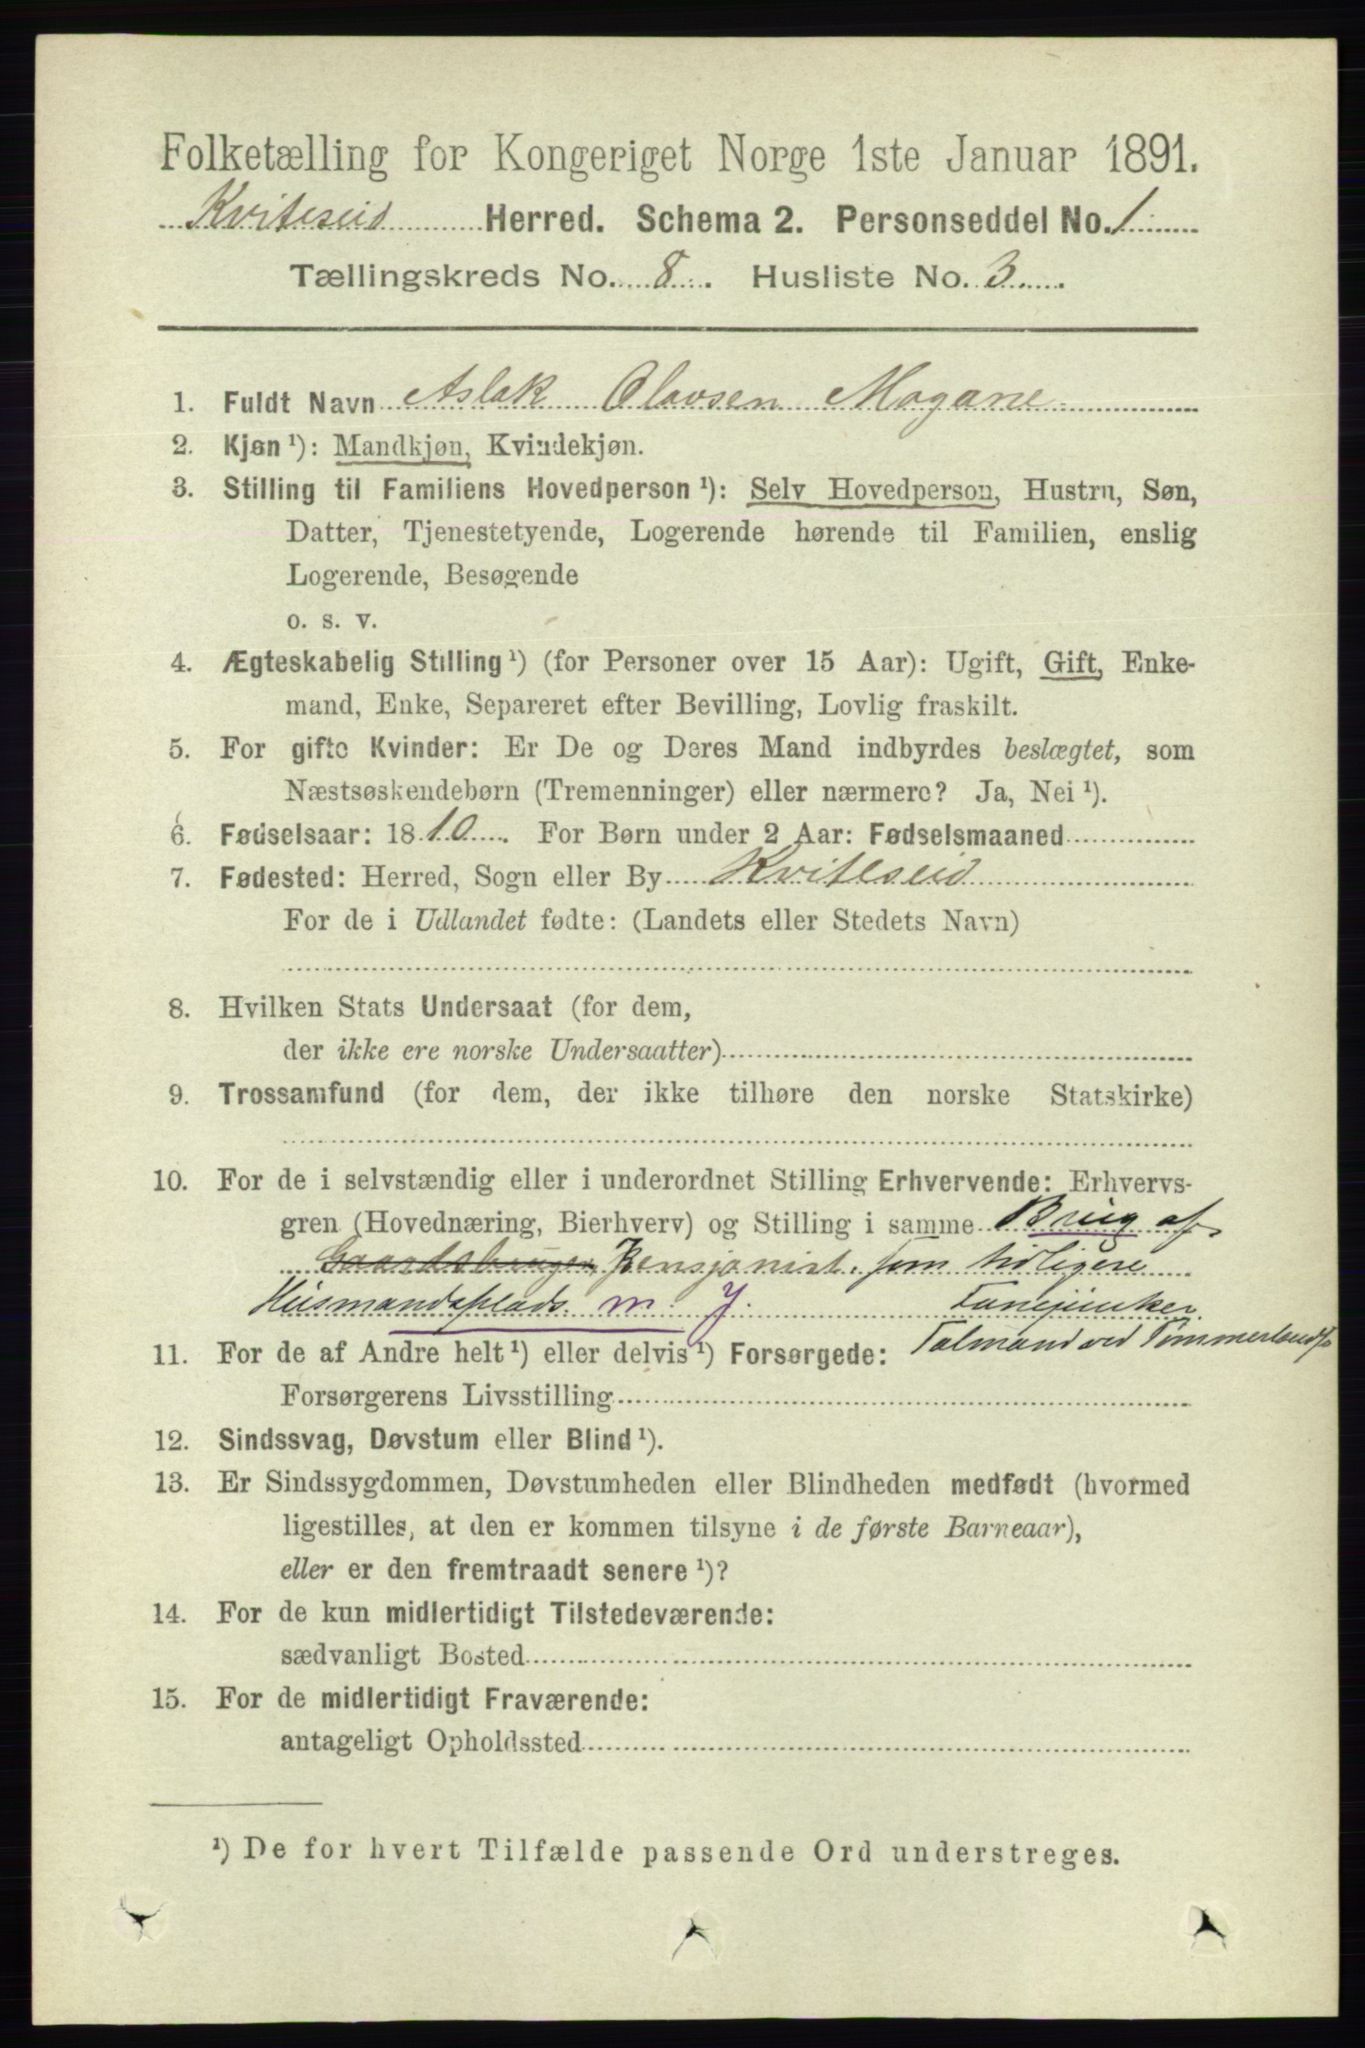 Folketælling for Kongeriget Norge 1ste Januar 1891.
Kviteseid Herred. Schema 2. Personseddel No. 1
Tællingskreds No. 8. Husliste No. 3
1. Fuldt Navn Aslak Olavsen Mogane
2. Kjøn ¹): Mandkjøn, Kvindekjøn.
3. Stilling til Familiens Hovedperson ¹): Selv Hovedperson, Hustru, Søn,
Datter, Tjenestetyende, Logerende hørende til Familien, enslig
Logerende, Besøgende
o. s. v.
4. Ægteskabelig Stilling ¹) (for Personer over 15 Aar): Ugift, Gift, Enke-
mand, Enke, Separeret efter Bevilling, Lovlig fraskilt.
5. For gifte Kvinder: Er De og Deres Mand indbyrdes beslægtet, som
Næstsøskendebørn (Tremenninger) eller nærmere? Ja, Nei ¹).
6. Fødselsaar: 1810. For Børn under 2 Aar: Fødselsmaaned
7. Fødested: Herred, Sogn eller By Kviteseid
For de i Udlandet fødte: (Landets eller Stedets Navn)
8. Hvilken Stats Undersaat (for dem,
der ikke ere norske Undersaatter)
9. Trossamfund (for dem, der ikke tilhøre den norske Statskirke)
10. For de i selvstændig eller i underordnet Stilling Erhvervende: Erhvervs-
gren (Hovednæring, Bierhverv) og Stilling i samme Brug af
Gaardsbruger Pensjonist. som tidligere
Husmandsplads m. J. Fanejunker
Tolmand ved
11. For de af Andre helt ¹) eller delvis ¹) Forsørgede:
Forsørgerens Livsstilling
12. Sindssvag, Døvstum eller Blind ¹).
13. Er Sindssygdommen, Døvstumheden eller Blindheden medfødt (hvormed
ligestilles, at den er kommen tilsyne i de første Barneaar),
eller er den fremtraadt senere ¹)?
14. For de kun midlertidigt Tilstedeværende:
sædvanligt Bosted
15. For de midlertidigt Fraværende:
antageligt Opholdssted
¹) De for hvert Tilfælde passende Ord understreges.